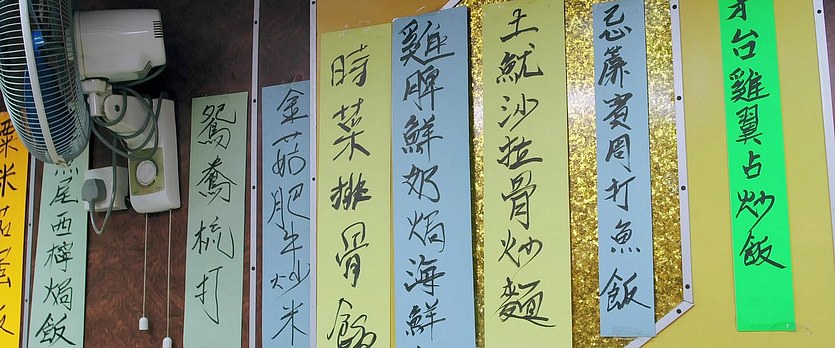 台雞翼占炒飯
忌廉賓周打魚飯
土魷沙拉骨炒麵
雞脾鮮奶焗海鮮
時菜排骨飯
金菇肥牛炒米
鴛鴦梳打
尾西檸焗飯
粟米茄蛋飯